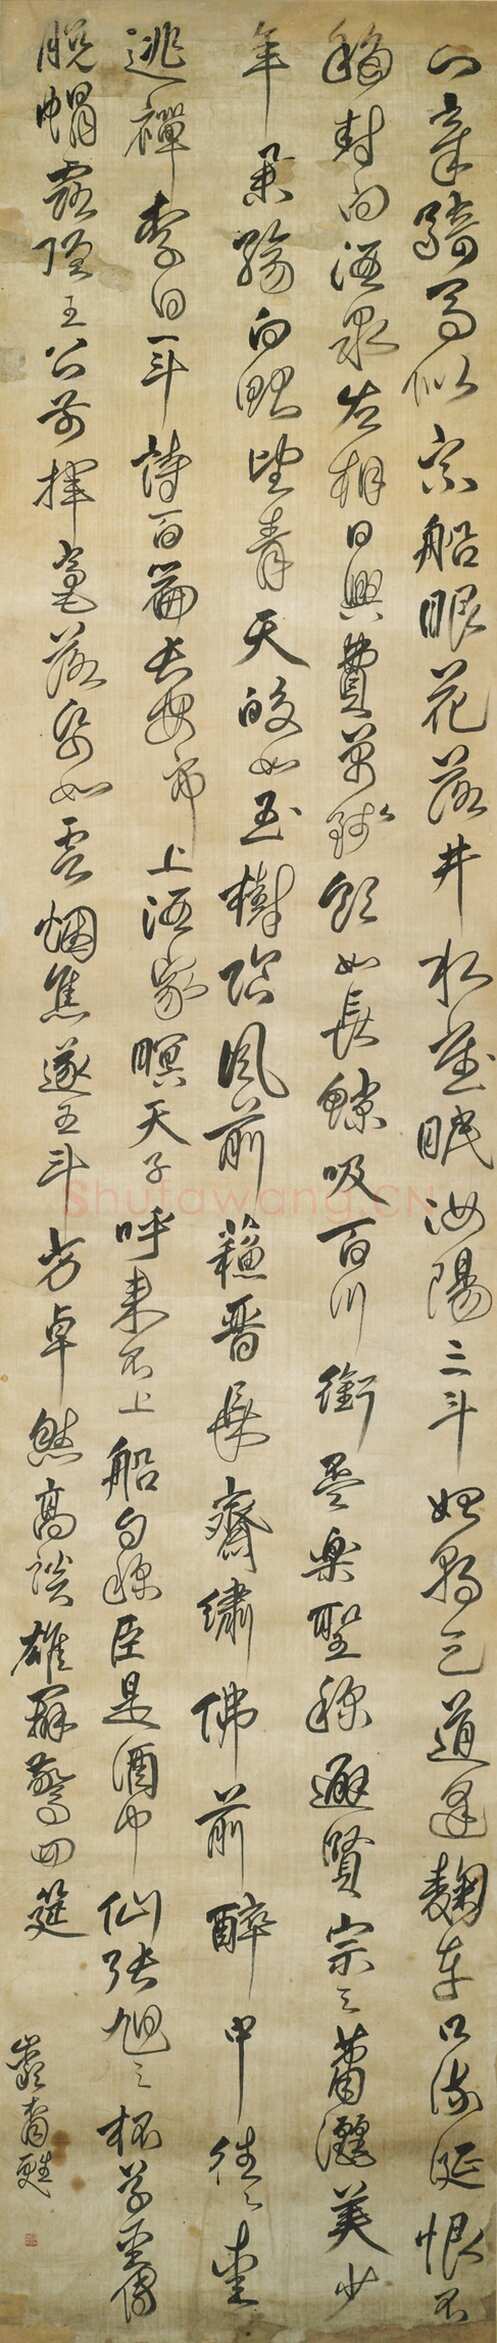 知章騎馬似乘船眼花落井水底眠汝陽三斗始朝天道逢麴車口流涎恨不
移封向酒泉左相日興費萬錢飲如長鯨吸百川銜杯樂聖稱避賢宗之蕭灑美少
年舉觴白眼望青天皎如玉樹臨風前蘇晉長齋繡佛前醉中往往愛
逃禪李白一斗詩百篇長安市上酒家瞑天子呼來不上船自稱臣是酒中仙張旭三杯草聖傳
脫帽露頂王公前揮毫落紙如雲烟焦遂五斗方卓然高談雄辯驚四筵
Shufawang.CN